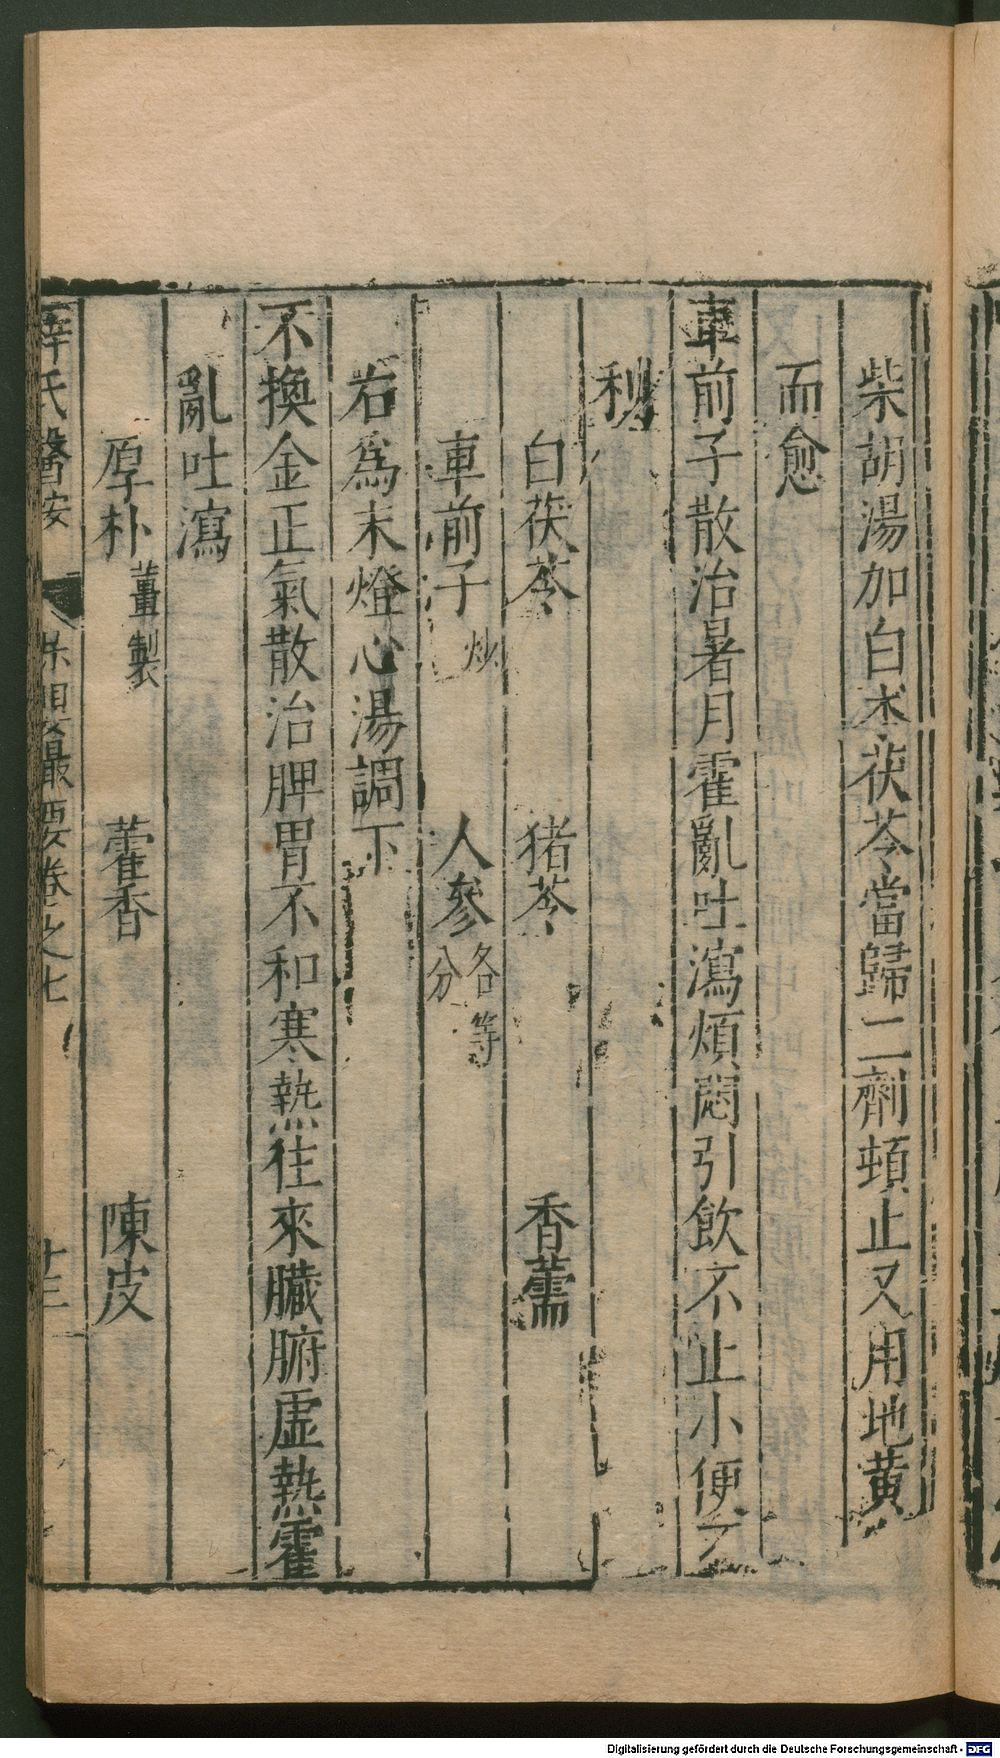 柴胡湯加白朮茯苓當歸二劑頓止又用地黄
而愈
車前子散治暑月霍亂吐瀉煩悶引飲不止小便不
利
白茯苓 猪苓 香薷
車前子炒 人參各等分
右爲末燈心湯調下
不換金正氣散治脾胃不和寒熱往來臓腑虚熱霍
亂吐瀉
厚朴薑製 藿香 陳皮
薛氏醫按 保嬰撮要卷之七 十三
Digitalisierung gefördert durch die Deutsche Forschungsgemeinschaft - DFG